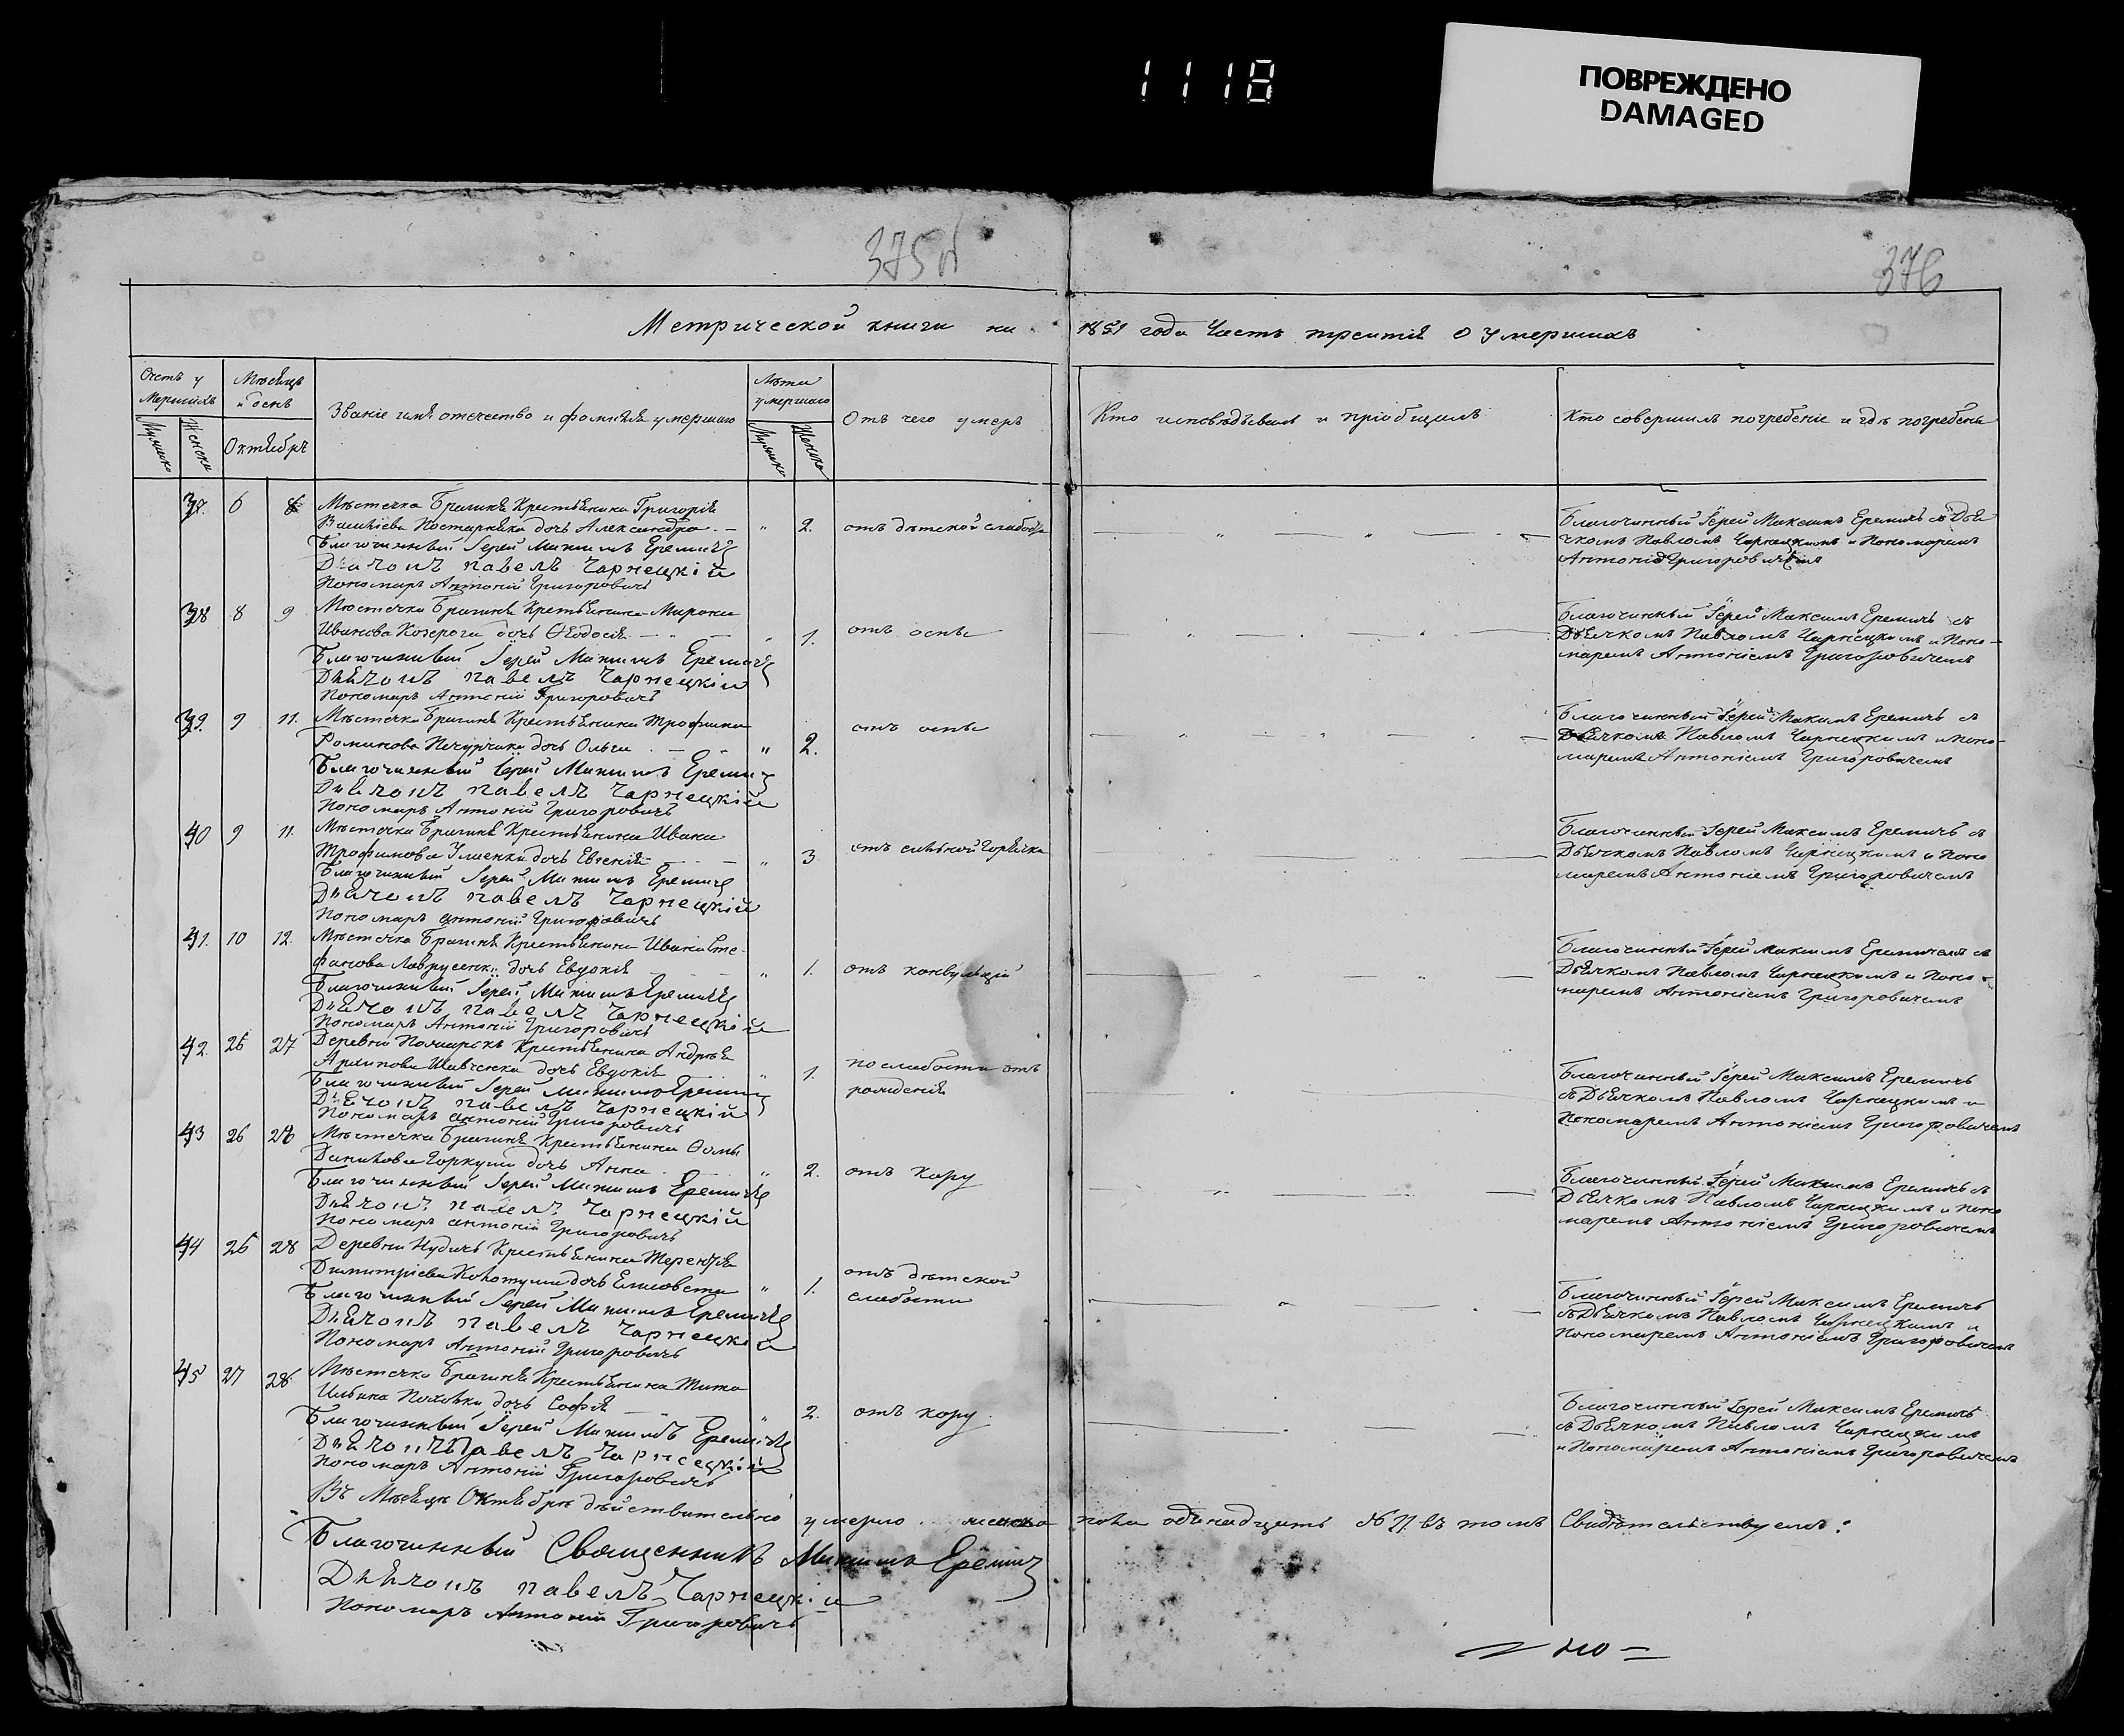 1118
ПОВРЕЖДЕНО
DAMAGED
376
Метрической книги на 1851 года Часть третія О Умершихъ
Счетъ у
мершихъ
Мѣсяцъ
и день
Октябрь
Званіе имя отечество и фамилія умершаго
Лѣта
умершаго
Отъ чего умеръ
Кто исповѣдывалъ и пріобщилъ
Кто совершилъ погребеніе и гдѣ погребены
6
Мѣстечка Брагиня Крестьянина Григорія
дочь Александра
" 2. отъ дѣтской слабости
Благочинный Іерей Максимъ Еремичъ
Дьячокъ Павелъ Чарнецкій
Пономарь Антоній Григоровичъ
Благочинный Іерей Максимъ Еремичъ съ Дья
чкомъ Павломъ Чарнецкимъ и Пономаремъ
Антоніемъ Григоровичемъ
38 8 9 Мѣстечка Брагиня Крестьянина Мирона
Иванова Козероги дочь Ѳеодосія
" 1. отъ оспы
Благочинный Іерей Максимъ Еремичъ
Дьячокъ Павелъ Чарнецкій
Пономарь Антоній Григоровичъ
Благочинный Іерей Максимъ Еремичъ съ
Дьячкомъ Павломъ Чарнецкимъ и Поно-
маремъ Антоніемъ Григоровичемъ
39. 9 11. Мѣстечка Брагиня Крестьянина Трофима
Романова дочь Ольга
" 2. отъ оспы
Благочинный Іерей Максимъ Еремичъ
Дьячокъ Павелъ Чарнецкій
Пономарь Антоній Григоровичъ
Благочинный Іерей Максимъ Еремичъ съ
Дьячкомъ Павломъ Чарнецкимъ и Поно-
маремъ Антоніемъ Григоровичемъ
40 9 11. Мѣстечка Брагиня Крестьянина Ивана
Трофимова дочь Евгенія
" 3 отъ сильной горячки
Благочинный Іерей Максимъ Еремичъ
Дьячокъ Павелъ Чарнецкій
Пономарь Антоній Григоровичъ
Благочинный Іерей Максимъ Еремичъ съ
Дьячкомъ Павломъ Чарнецкимъ и Поно
маремъ Антоніемъ Григоровичемъ
41. 10 12. Мѣстечка Брагиня Крестьянина Ивана Сте-
фанова дочь Евдокія
" 1. отъ конвульцій
Благочинный Іерей Максимъ Еремичъ
Дьячокъ Павелъ Чарнецкій
Пономарь Антоній Григоровичъ
Благочинный Іерей Максимъ Еремичемъ съ
Дьячкомъ Павломъ Чарнецкимъ и Поно-
маремъ Антоніемъ Григоровичемъ
42. 27 Деревни Крестьянина Андрея
Архипова Шевченки дочь Евдокія
" 1. по слабости отъ
рожденія
Благочинный Іерей Максимъ Еремичъ
Дьячокъ Павелъ Чарнецкій
Пономарь Антоній Григоровичъ
Благочинный Іерей Максимъ Еремичъ
съ Дьячкомъ Павломъ Чарнецкимъ и
Пономаремъ Антоніемъ Григоровичемъ
43 26 Мѣстечка Брагиня Крестьянина Ѳомы
Данилова Горкуши дочь Анна
" 2. отъ кору
Благочинный Іерей Максимъ Еремичъ
Дьячокъ Павелъ Чарнецкій
Пономарь Антоній Григоровичъ
Благочинный Іерей Максимъ Еремичъ съ
Дьячкомъ Павломъ Чарнецкимъ и Поно
маремъ Антоніемъ Григоровичемъ
44 28 Деревни Крестьянина Терентія
Димитріева дочь Елисавета
" 1. отъ дѣтской
слабости
Благочинный Іерей Максимъ Еремичъ
Дьячокъ Павелъ Чарнецкій
Пономарь Антоній Григоровичъ
Благочинный Іерей Максимъ Еремичъ
съ Дьячкомъ Павломъ Чарнецкимъ и
Пономаремъ Антоніемъ Григоровичемъ
45 27 Мѣстечка Брагиня Крестьянина Тита
дочь Софія
" 2. отъ кору
Благочинный Іерей Максимъ Еремичъ
Дьячокъ Павелъ Чарнецкій
Пономарь Антоній Григоровичъ
Благочинный Іерей Максимъ Еремичъ
съ Дьячкомъ Павломъ Чарнецкимъ
и Пономаремъ Антоніемъ Григоровичемъ
Въ Мѣсяцѣ Октябрѣ дѣйствительно умерло женска пола одинадцать въ томъ Свидѣтельствуемъ:
Благочинный Священникъ Максимъ Еремичъ
Дьячокъ Павелъ Чарнецкій
Пономарь Антоній Григоровичъ